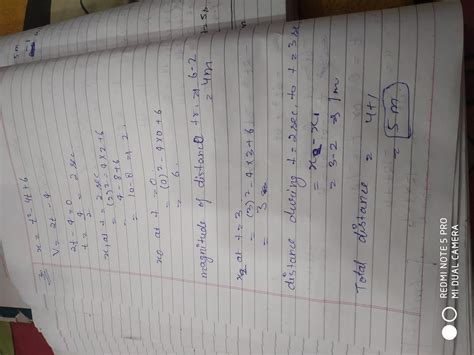 x = t² - 4t + 6
V = 2t - 4
2t - 4 = 0
t = 4/2 = 2 sec.
x₁ at t = 2 sec
= (2)² - 4 × 2 + 6
= 4 - 8 + 6
= 10 - 8 ⇒ 2.
x₀ at t = 0
= (0)² - 4 × 0 + 6
= 6.
magnitude of distance 6-2
= 4m
x₂ at t = 3
= (3)² - 4 × 3 + 6
= 3
distance during t = 2 sec. to t = 3 sec
= x₂ - x₁
= 3 - 2 ⇒ 1 m
Total distance = 4+1
= 5 m
REDMI NOTE 5 PRO
MI DUAL CAMERA